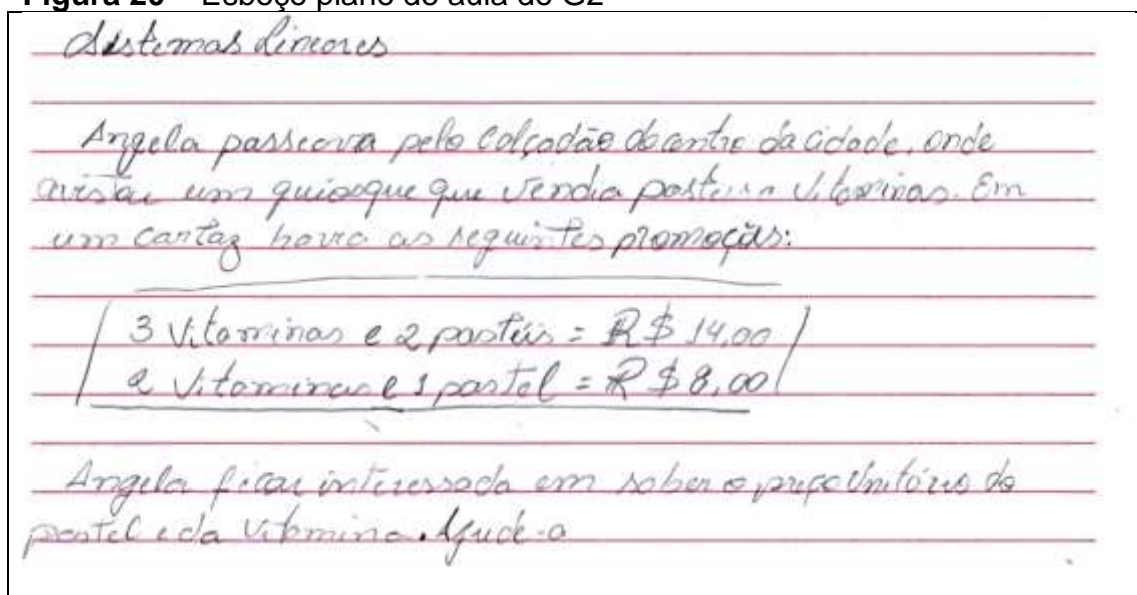 Figura 20 – Esboço plano de aula do G2
Sistemas Lineares
Angela passeava pelo calçadão do centro da cidade, onde
avistou um quiosque que vendia pasteis e vitaminas. Em
um cartaz havia as seguintes promoções:
3 Vitaminas e 2 pastéis = R$ 14,00
2 Vitaminas e 1 pastel = R$ 8,00
Angela ficou interessada em saber o preço Unitário do
pastel e da vitamina. Ajude-a